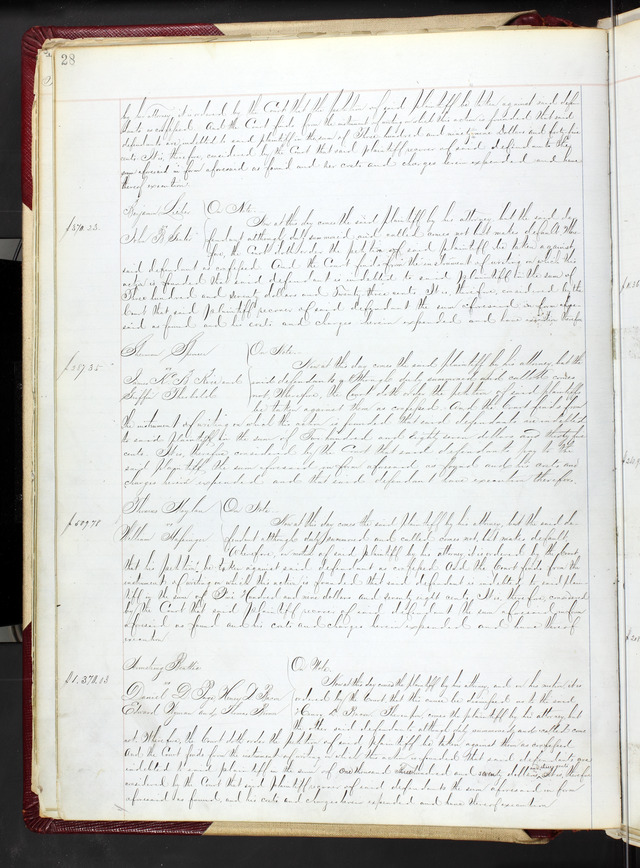 28
by his attorney it is ordered by the Court that the petition of said Plaintiff be taken against said defen
dants as confessed. And the Court finds from the instrument of writing on which this action is founded that said
defendants are indebted to said plaintiff in the sum of Three hundred and ninety nine Dollars and forty five
cents. It is therefore considered by the Court that said plaintiff recover of said defendants the
sum aforesaid in form aforesaid as found and his costs and charges herein expended and have
thereof execution
Benjamin
vs } On Note.
$370.23.
Now at this day comes the said Plaintiff by his attorney, but the said de
John R
fendant although duly summoned and called comes not but makes default. Where
fore, the Court doth order the petition of said Plaintiff be taken against
said defendant as confessed. And the Court finds from the instrument of writing on which this
action is founded that said defendant is indebted to said Plaintiff in the sum of
Three hundred and seventy dollars and Twenty three cents. It is therefore considered by the
Court that said Plaintiff recover of said defendant the sum aforesaid in form afore
said as found and his costs and charges herein expended and have execution therefor
$287.35
vs } On Note.
Now at this day comes the said Plaintiff by his attorney, but the
said defendants although duly summoned and called come
not, Wherefore, the Court doth order the petition of said plaintiff
be taken against them as confessed. And the Court finds from
the instrument of writing on which the action is founded that said defendants are indebted
to said Plaintiff in the sum of Two hundred and eighty seven dollars and thirty five
cents. It is therefore considered by the Court that said defendants pay to the
said Plaintiff the sum aforesaid in form aforesaid as found and his costs and
charges herein expended and that said defendant have execution therefor.
Thomas
vs } On Note.
$509.78
Now at this day comes the said Plaintiff by his attorney, but the said de
William
fendant although duly summoned and called comes not but makes default
Wherefore, on motion of said Plaintiff by his attorney it is ordered by the Court
that his petition be taken against said defendant as confessed. And the Court finds from the
instrument of writing on which the action is founded that said defendant is indebted to said plain
tiff in the sum of Five Hundred and nine dollars and seventy eight cents. It is therefore considered
by the Court that said plaintiff recover of said defendant the sum aforesaid in form
aforesaid as found and his costs and charges herein expended and have thereof
execution
vs } On Note.
$1.370.13
Now at this day comes the plaintiff by his attorney and on his motion it is
Daniel D
ordered by the Court that the cause be dismissed as to the said
Edward and Thomas
Henry Therefore comes the plaintiff by his attorney but
the other said defendants although duly summoned and called come
not. Wherefore, the Court doth order the petition of said plaintiff be taken against them as confessed.
And the Court finds from the instrument of writing on which the action is founded that said defendants are
indebted to said plaintiff in the sum of One thousand three hundred and seventy dollars It is therefore
considered by the Court that said Plaintiff recover of said defendants the sum aforesaid in form
aforesaid as found, and his costs and charges herein expended and have thereof execution